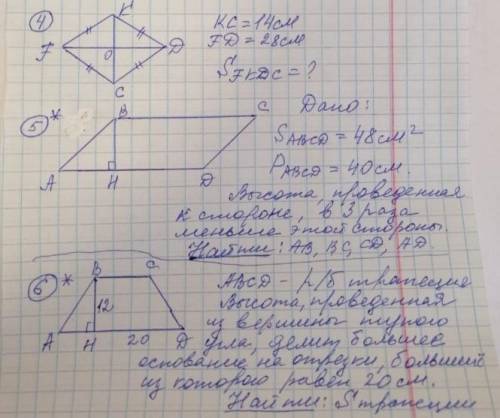 4
K
F
O
D
C
KC = 14см
FD = 28см
SFKDC = ?
5 *
B
C
A
H
D
Дано:
SABCD = 48см²
PABCD = 40см.
Высота, проведенная
к стороне, в 3 раза
меньше этой стороны.
Найти: AB, BC, CD, AD.
6 *
B
C
12
A
H
20
D
ABCD - р/б трапеция
Высота, проведенная
из вершины тупого
угла, делит большее
основание на отрезки, больший
из которого равен 20 см.
Найти: S трапеции